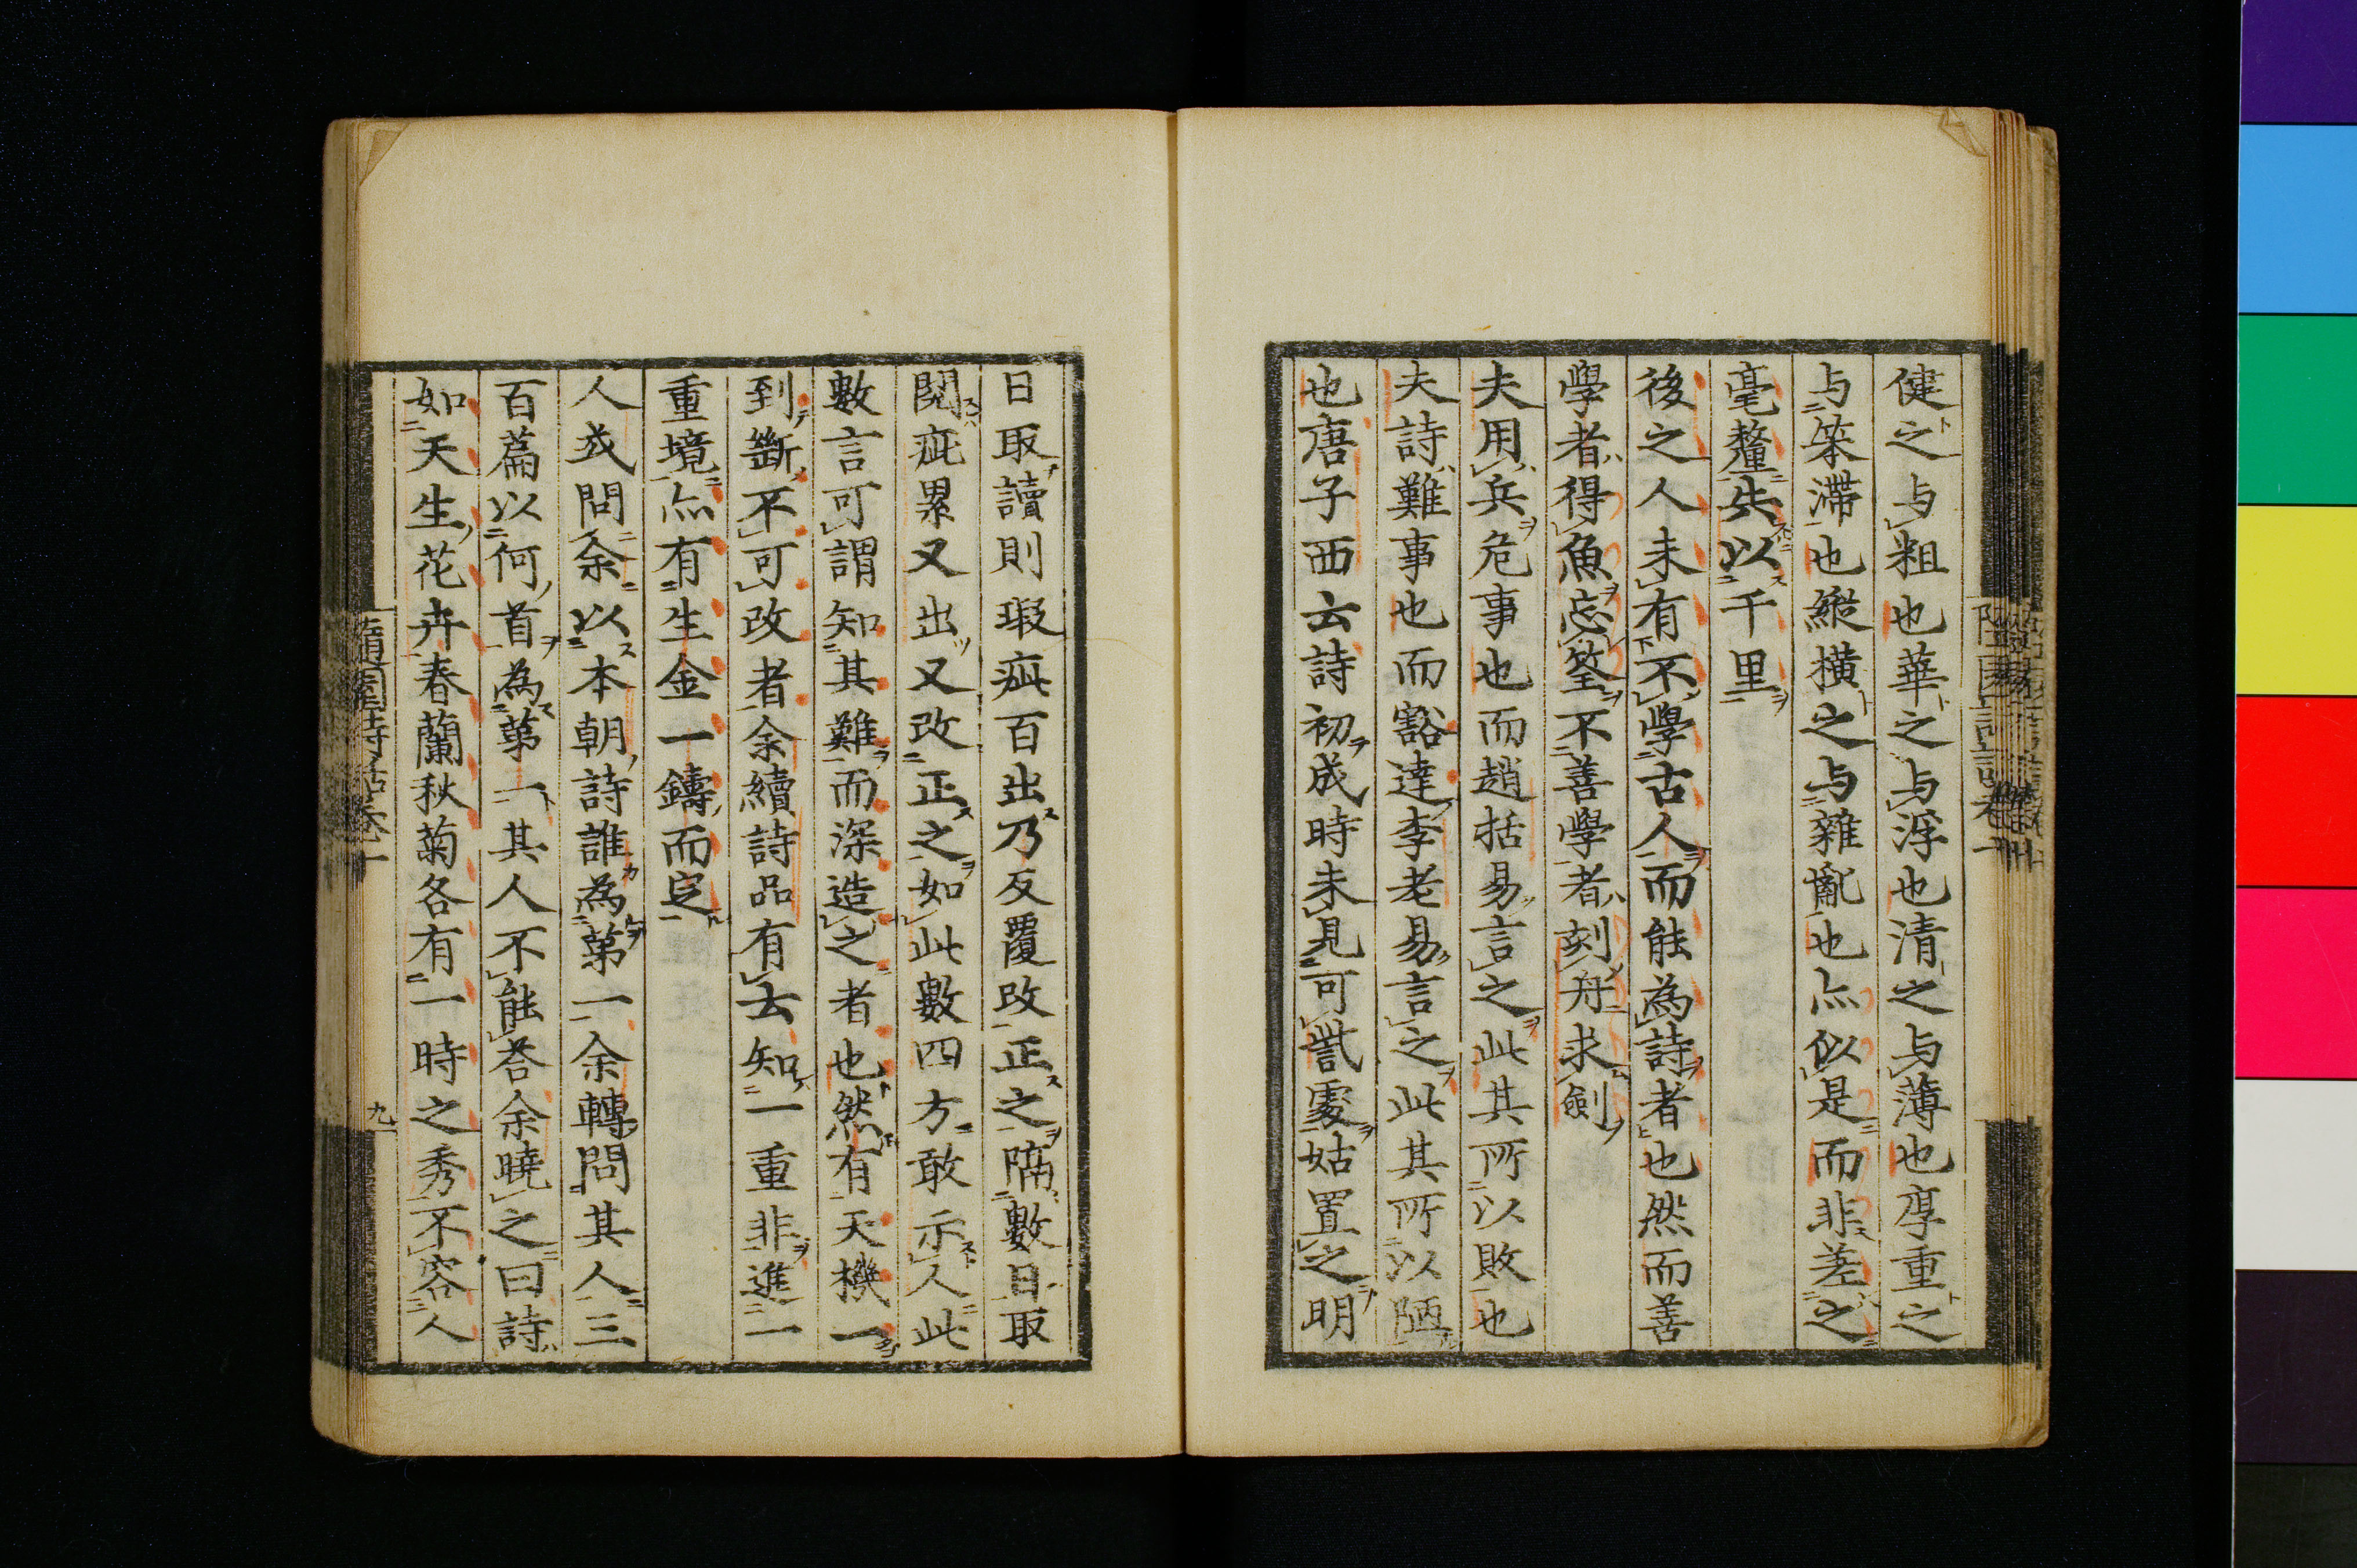 健之与粗也華之与浮也清之与薄也厚重之
与笨滞也縱横之与雜亂也亦似是而非差之
毫釐失以千里
後之人未有不學古人而能為詩者也然而善
學者得魚忘筌不善學者刻舟求劍
夫用兵危事也而趙括易言之此其所以敗也
夫詩難事也而豁達李老易言之此其所以陋
也唐子西云詩初成時未見可訾處姑置之明
日取讀則瑕疵百出乃反覆改正之隔數日取
閱疵累又出又改正之如此數四方敢示人此
數言可謂知其難而深造之者也然有天機一
到斷不可改者余續詩品有云知一重非進一
重境亦有生金一鑄而定
人或問余以本朝詩誰為第一余轉問其人三
百篇以何首為第一其人不能荅余曉之曰詩
如天生花卉春蘭秋菊各有一時之秀不容人
隨園詩話卷一
九